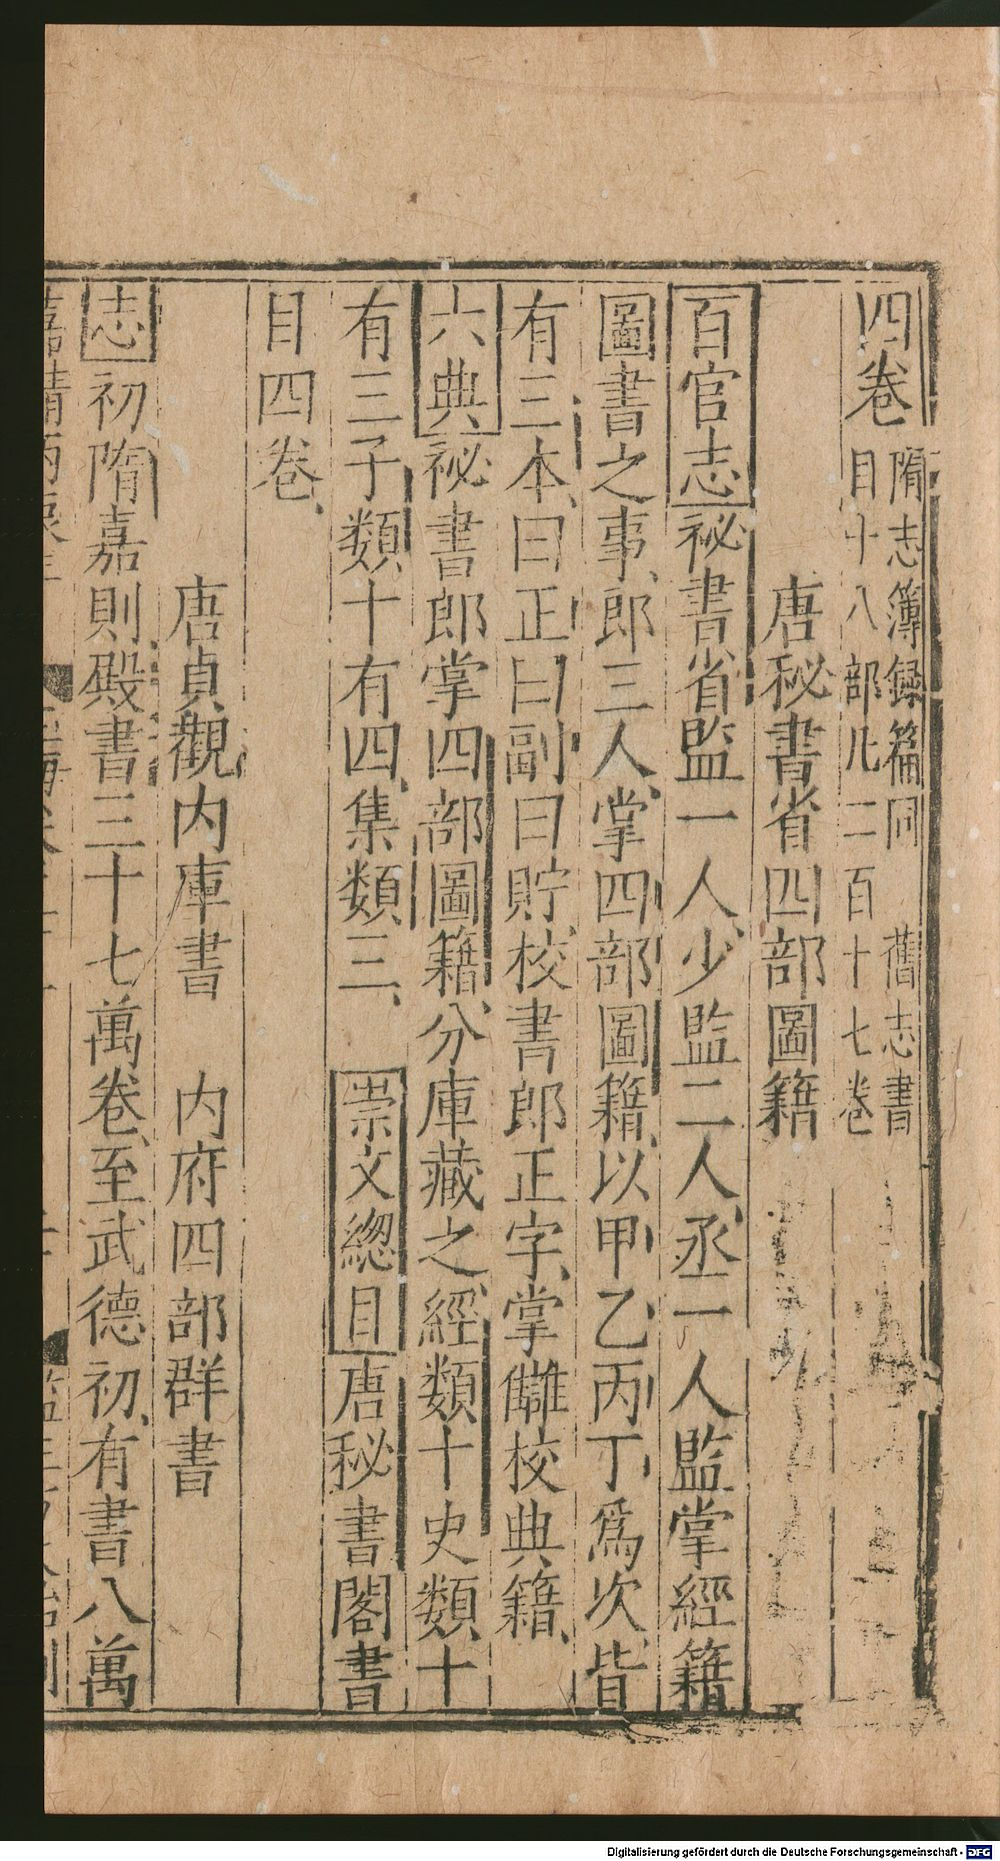 四卷 隋志簿録篇同 舊志書
目十八部凡二百十七卷
唐秘書省四部圖籍
百官志祕書省監一人少監二人丞一人監掌經籍
圖書之事郎三人掌四部圖籍以甲乙丙丁爲次皆
有三本曰正曰副曰貯校書郎正字掌讎校典籍
六典祕書郎掌四部圖籍分庫藏之經類十史類十
有三子類十有四集類三 崇文緫目唐秘書閣書
目四卷
唐貞觀内庫書 内府四部群書
志初隋嘉則殿書三十七萬卷至武德初有書八萬
Digitalisierung gefördert durch die Deutsche Forschungsgemeinschaft - DFG